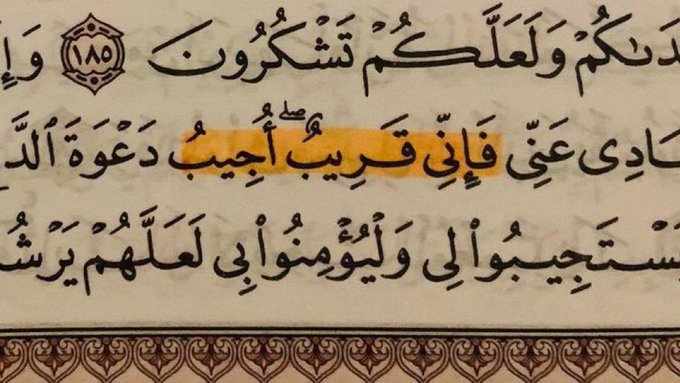 دَىٰكُمْ وَلَعَلَّكُمْ تَشْكُرُونَ ١٨٥ وَإِ
ادِى عَنِّى فَإِنِّى قَرِيبٌ ۖ أُجِيبُ دَعْوَةَ ٱلدَّ
سْتَجِيبُوا۟ لِى وَلْيُؤْمِنُوا۟ بِى لَعَلَّهُمْ يَرْشُ